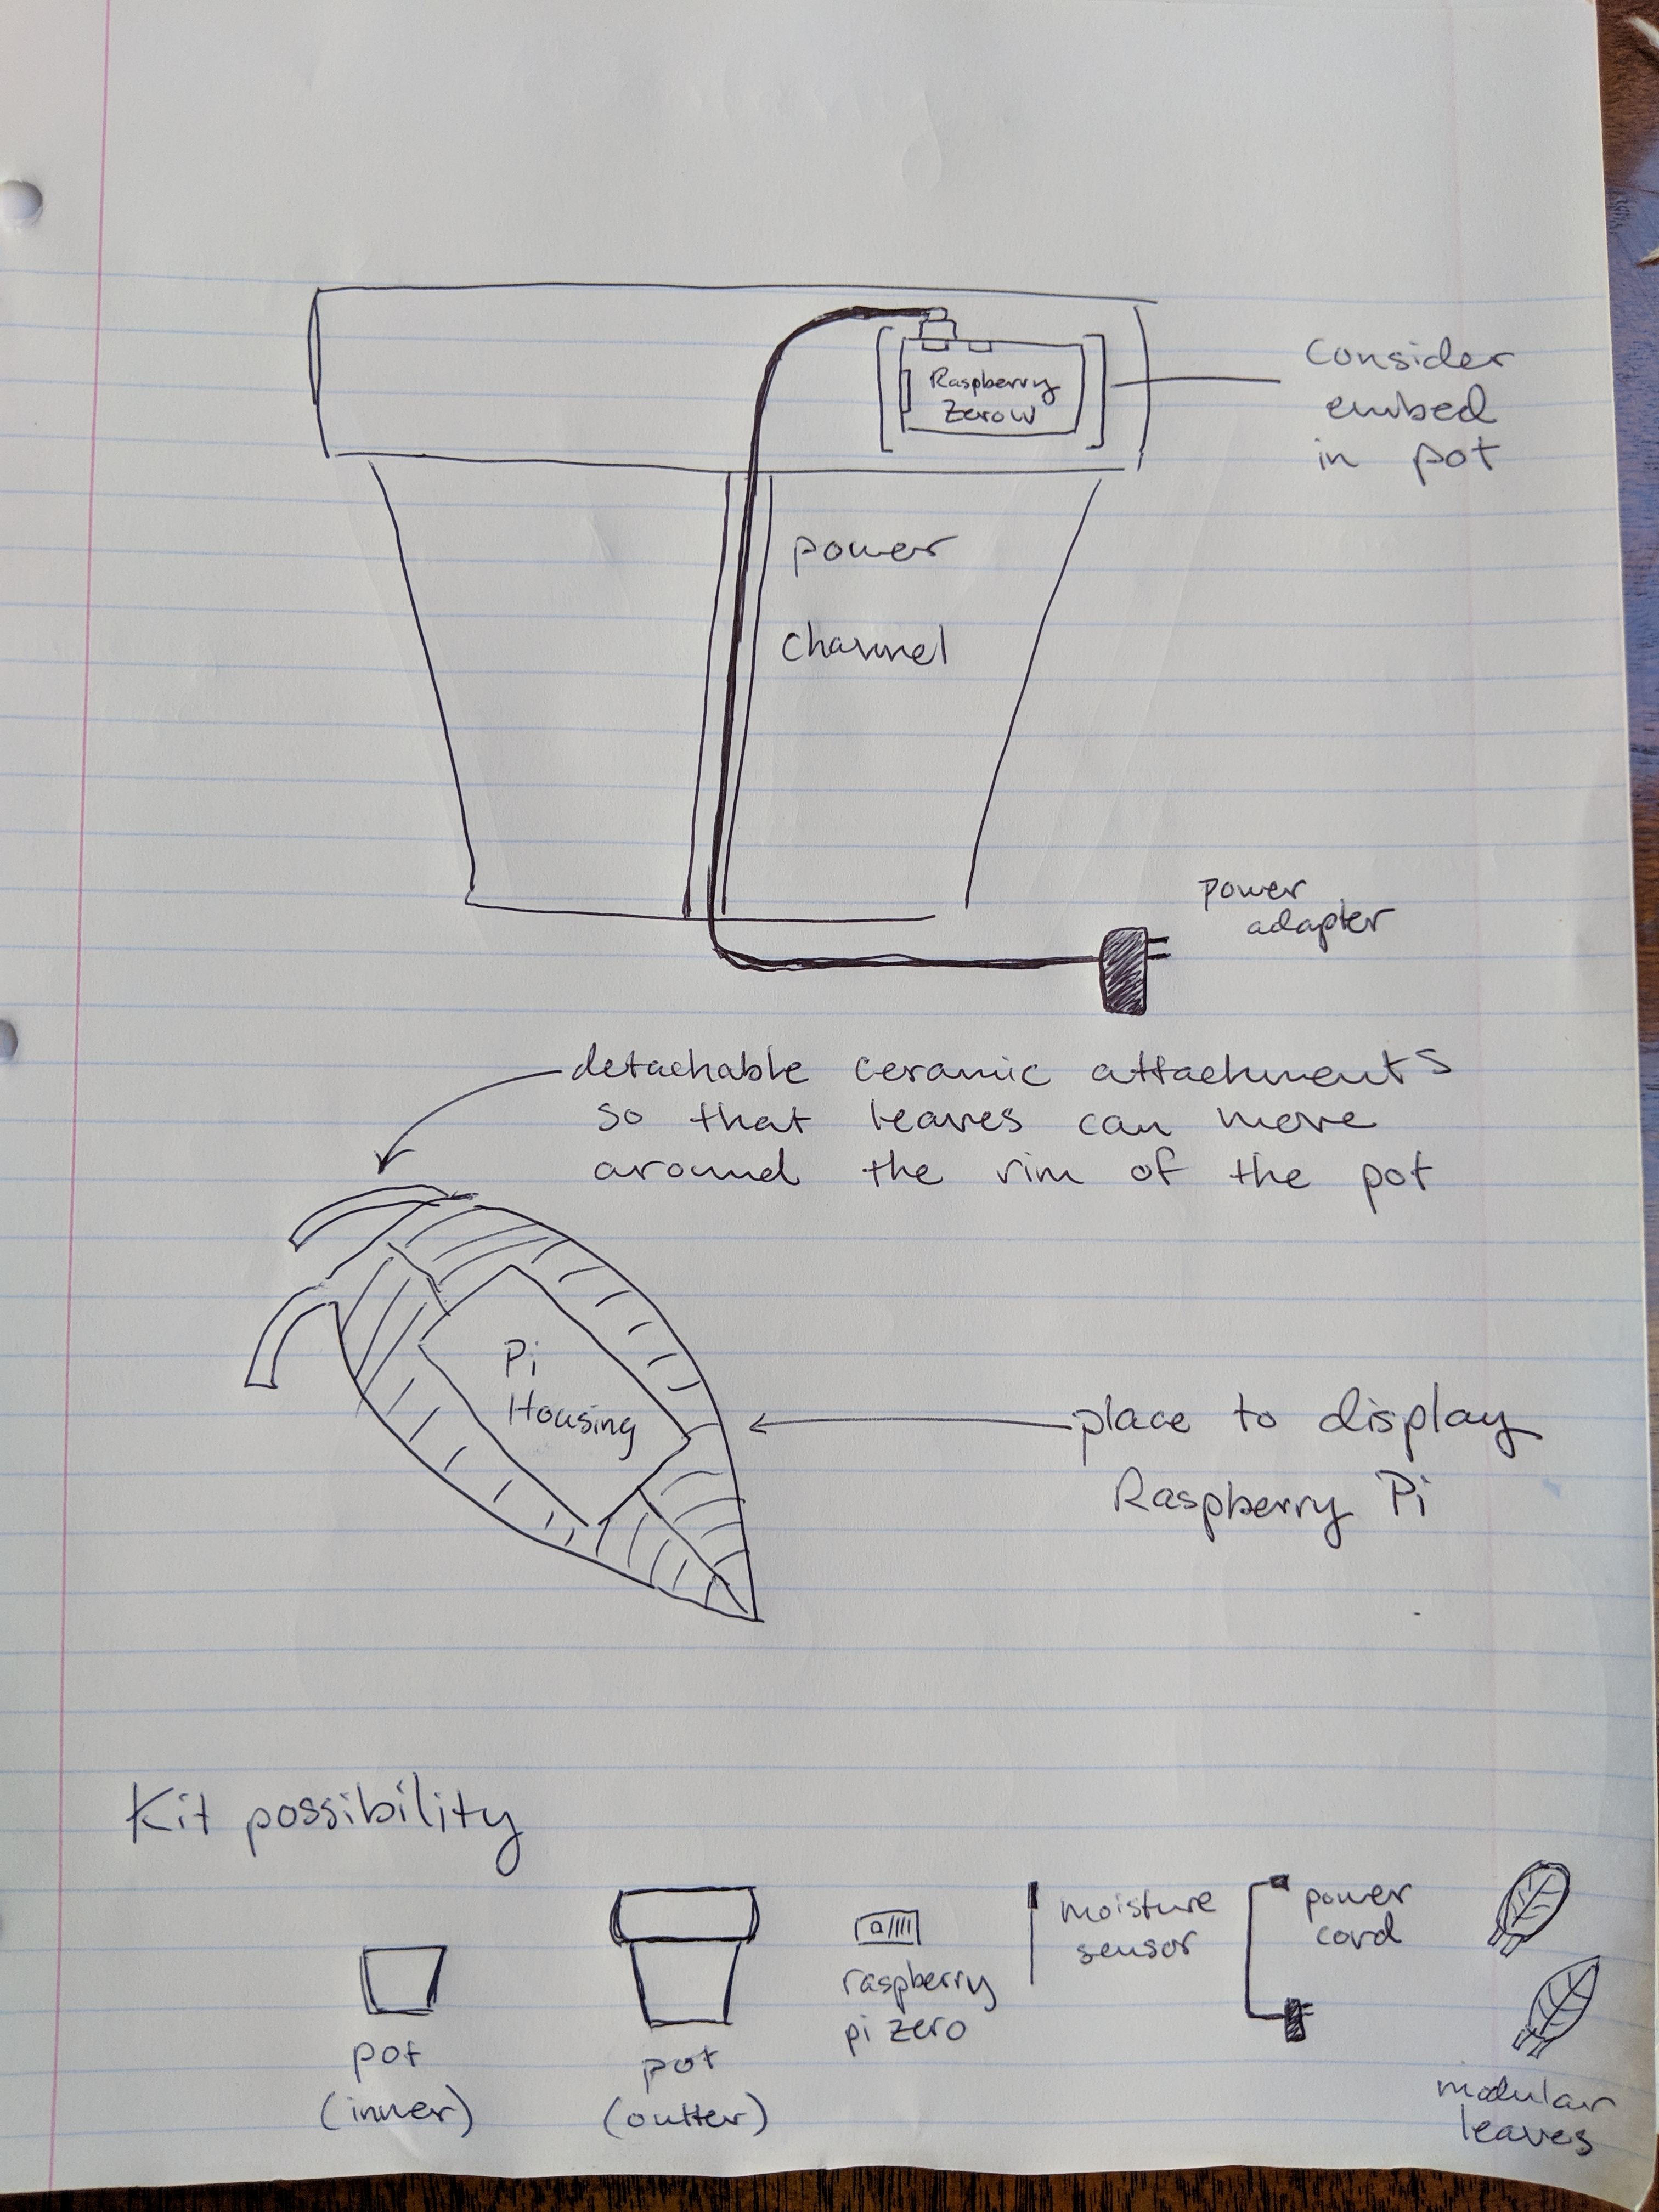 Raspberry
Zero W
Consider
embed
in pot
power
channel
power
adapter
detachable ceramic attachments
so that leaves can move
around the rim of the pot
Pi
Housing
place to display
Raspberry Pi
Kit possibility
pot
(inner)
pot
(outter)
raspberry
pi zero
moisture
sensor
power
cord
modular
leaves